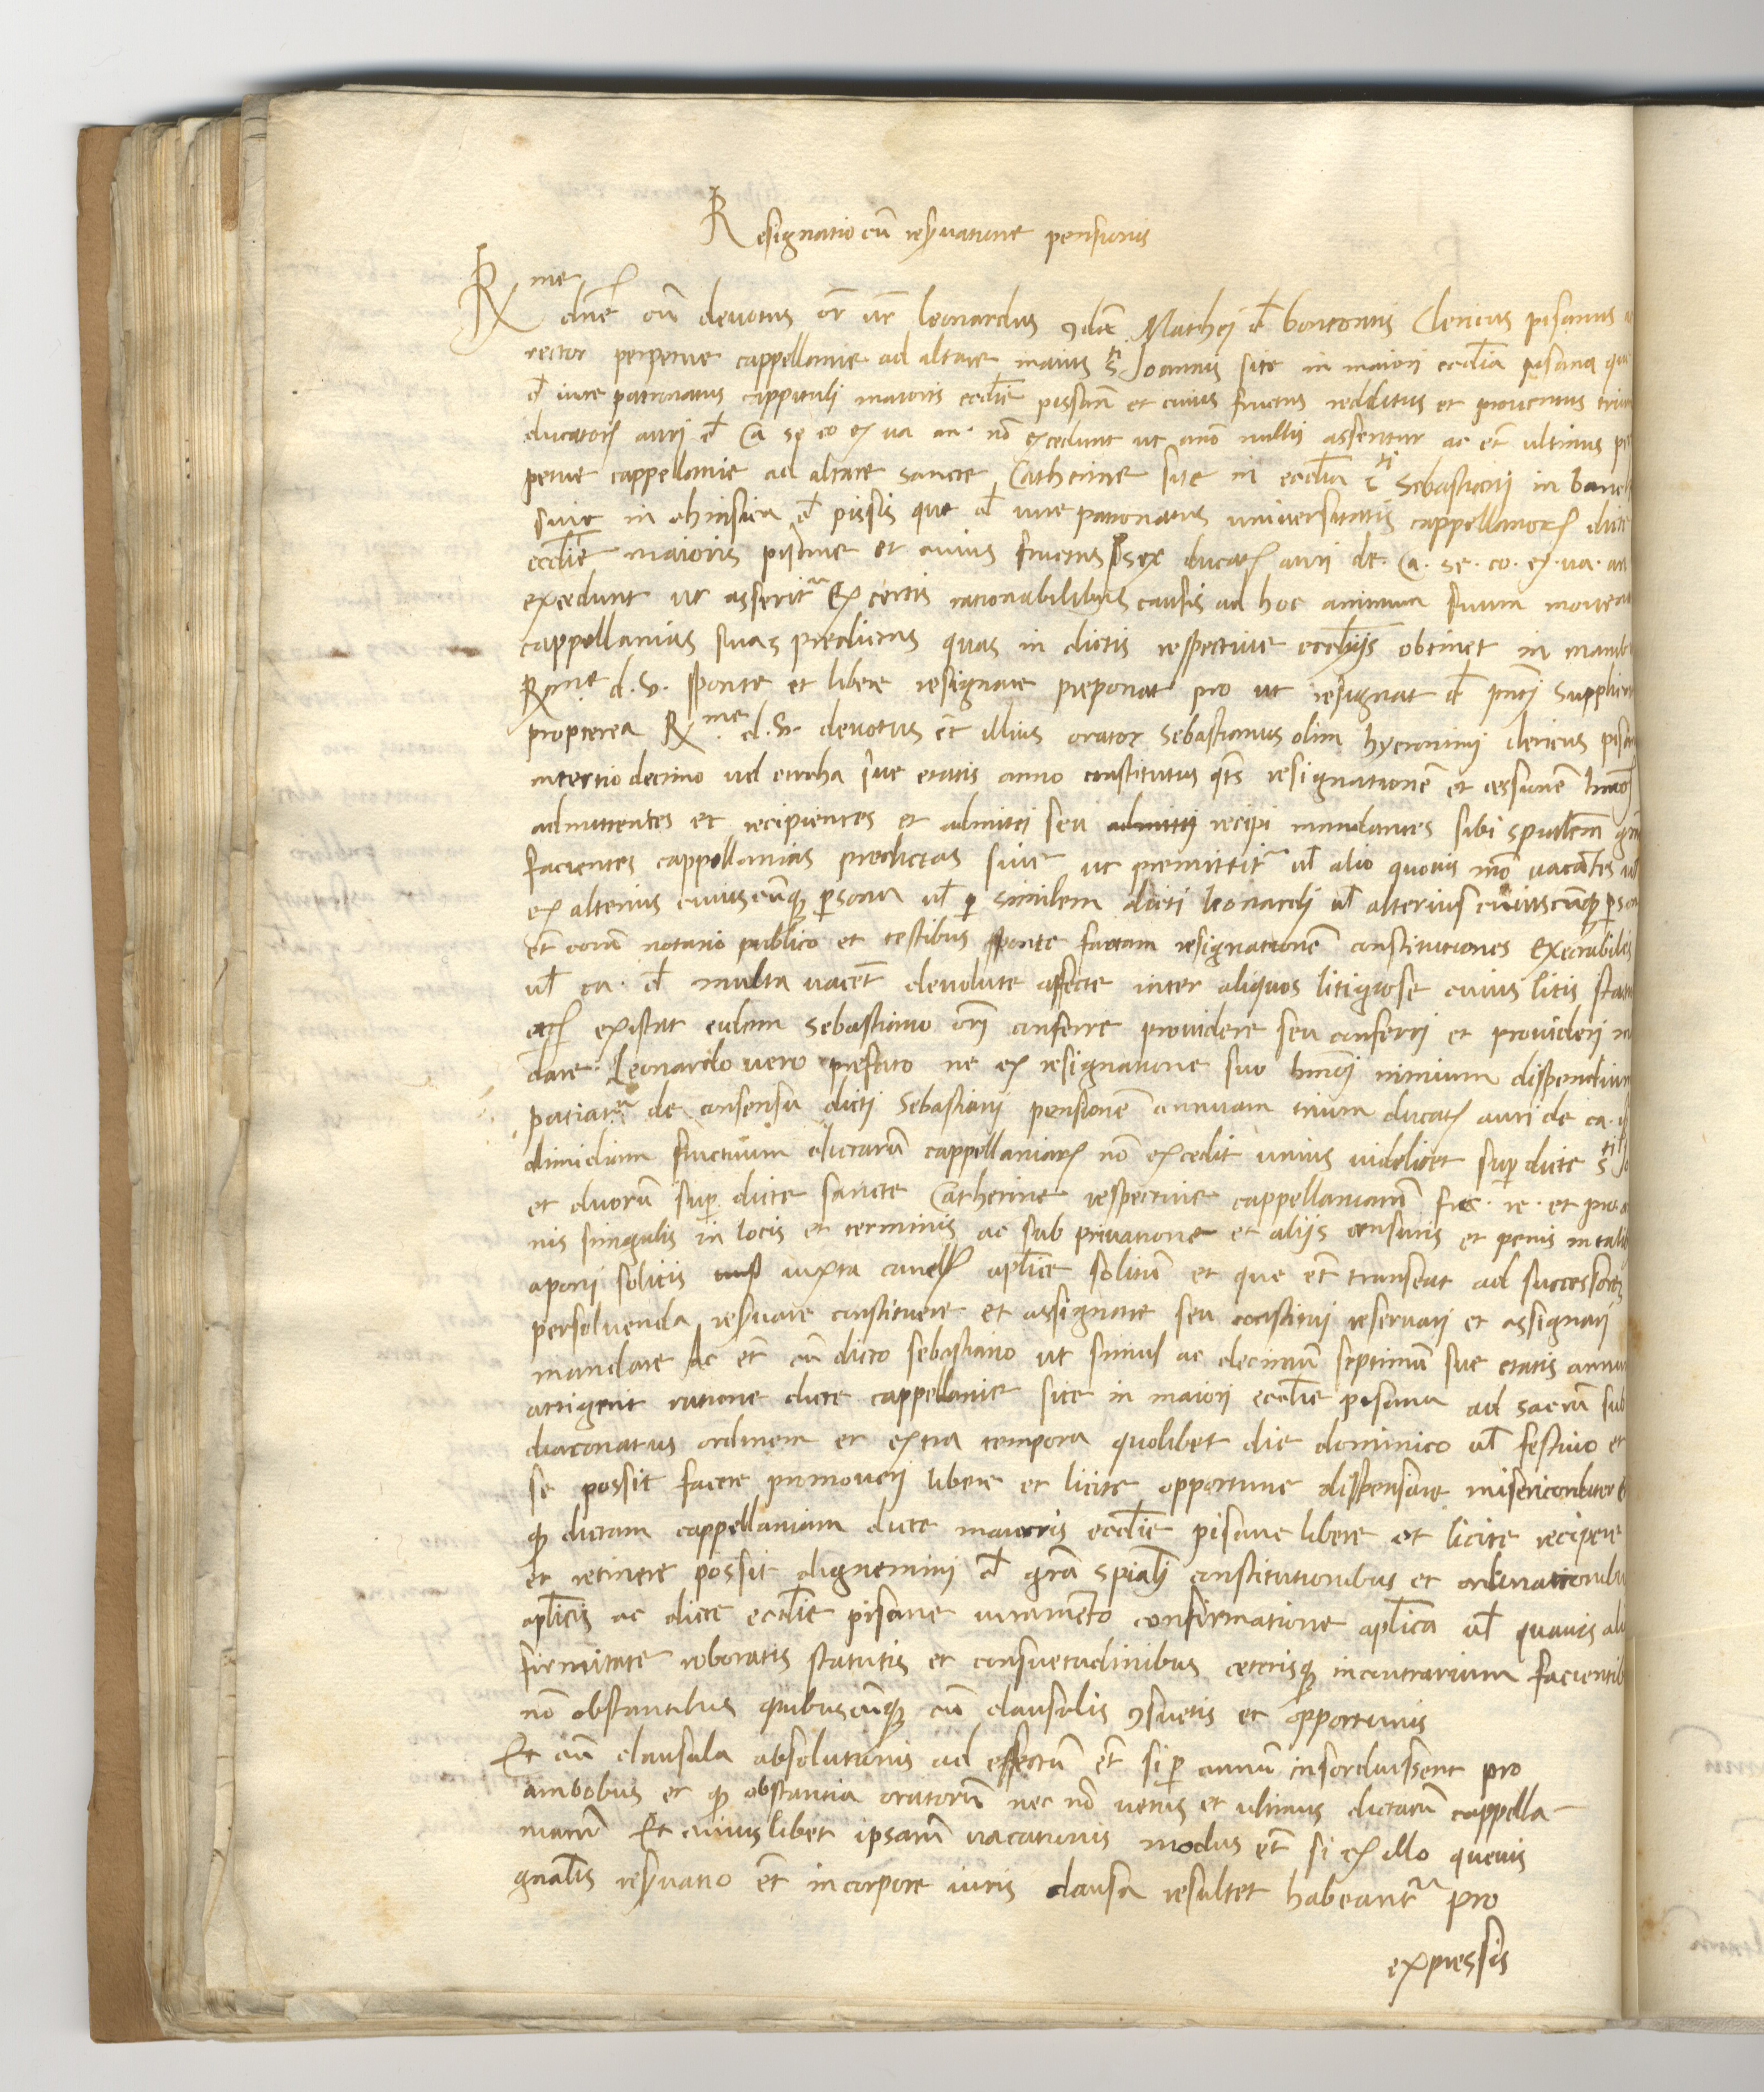 Resignatio cū reſ̃uatione pensionis
R.me dñe cū deuotus or̃ ur̃ leonardus ꝯdā Mathej đ boncontis Clericus pisanus
rector perpetue cappellanie ad altare s.ti Joannis site in maiori ecclīa pisana que
đ iure patronatus cappituli maioris ecclīe pissan̄ et cuius fructus redditus et prouentus trium
ducatorꝝ auri đ Ca se co ex ua an. nō excedunt ut ano nullij asseritur ac et̄ ultimus per
petue cappellanie ad altare sancte Catherine site in ecclīa s.ti Sebastianj in banch
siue in chinsica đ pissis que đ iure patronatus universitatis cappellanorꝝ dicte
ecclīe maioris pisane et cuius fructus sex ducatꝝ auri de. Ca. se. co. ex. ua. an
excedunt ut asserit̃ Ex certis rationabilibus causis ad hoc animum suum mouen
cappellanias suas predictas quas in dictis respectiue ecclīijs obtinet in manib
R.me d. v. sponte et libere resignare preponat pro ut resignat đ pñtj supplicat
propterea R.me d. v. deuotus ēt illius orator Sebastianus olim hyeronimj clericus pisan
in tertio decimo uel circha sue etatis anno constitutus q̄ts resignationē et cessionē hmōj
admittentes et recipientes et admitti seu recipi mandantes sibi sp̄ialem grā
facientes cappellanias predictas siue ut premittit̃ ul̄ alio quouis mō vacantis ul̄
ex alterius cuiuscunq̨ persona ul̄ ꝑ similem dicti leonardj ul̄ alterius cuiuscunq̨ pson
et̄ coram notario publico et testibus sponte factam resignationē constitutiones Execrabilis
ul̄ ca. đ multa vacēt deuolute affecte inter aliquos litigiose cuius litis statu
etcꝝ existat eidem Sebastiano orj conferre prouidere seu conferrj et prouiderj m
dare. Leonardo uero prefato ne ex resignatione suo hmōj nimium dispendium
patiat̃ de consensu dictj Sebastianj pensionē annuam trium ducatꝝ auri de ca.
dimidiam fructuum dictarū cappellaniarꝝ nō excedit unius uidelicet suꝑ dicte s.ti Jo
et duorū suꝑ dicte sancte Catherine respectiue cappellaniarū fruc. re. et pro.
nis singulis in locis et terminis ac sub priuatione et alijs censuris et penis in talib
aponj solitis iuxta cancellꝝ aplīce solitū et que et̄ transeat ad successores
persoluenda reſ̃uare constituere et assignare seu constituj reseruarj et assignarj
mandare Ac et̄ cū dicto sebastiano ut simul ac decimū septimū sue etatis annum
attigerit ratione dicte cappellanie site in maiorj ecclīe pisana ad sacrū sub
diaconatus ordinem et extra tempora quolibet die dominico ul̄ festiuo et
se possit facere promouerj libere et licite opportune dispensare misericorditer
q̨ dictam cappellaniam dicte maioris ecclīe pisane libere et licite recipere
et retinere possit dignemini đ grā sp̄ialj constitutionibus et ordinationibu
aplīcis ac dicte ecclīe pisane iuramento confirmatione aplīca ul̄ quauis alia
firmitate roboratis statutis et consuetudinibus ceterisq̨ incontrarium facientib
nō obstantibus quibuscūnq̨ cū clausulis ꝯsuetis et opportunis
Et cū clausula absolutionis ad effectū et̄ si ꝑ annū insorduissent pro
ambobus et q̨ obstantia oratorū nec nō uerus et ultimus dictarū cappella-
niarū Et cuiuslibet ipsarū uacationis modus et̄ si ex illo queuis
gnalīs reſ̃uatio et̄ incorpore iuris clausa resultet habeant̃ pro
expressis